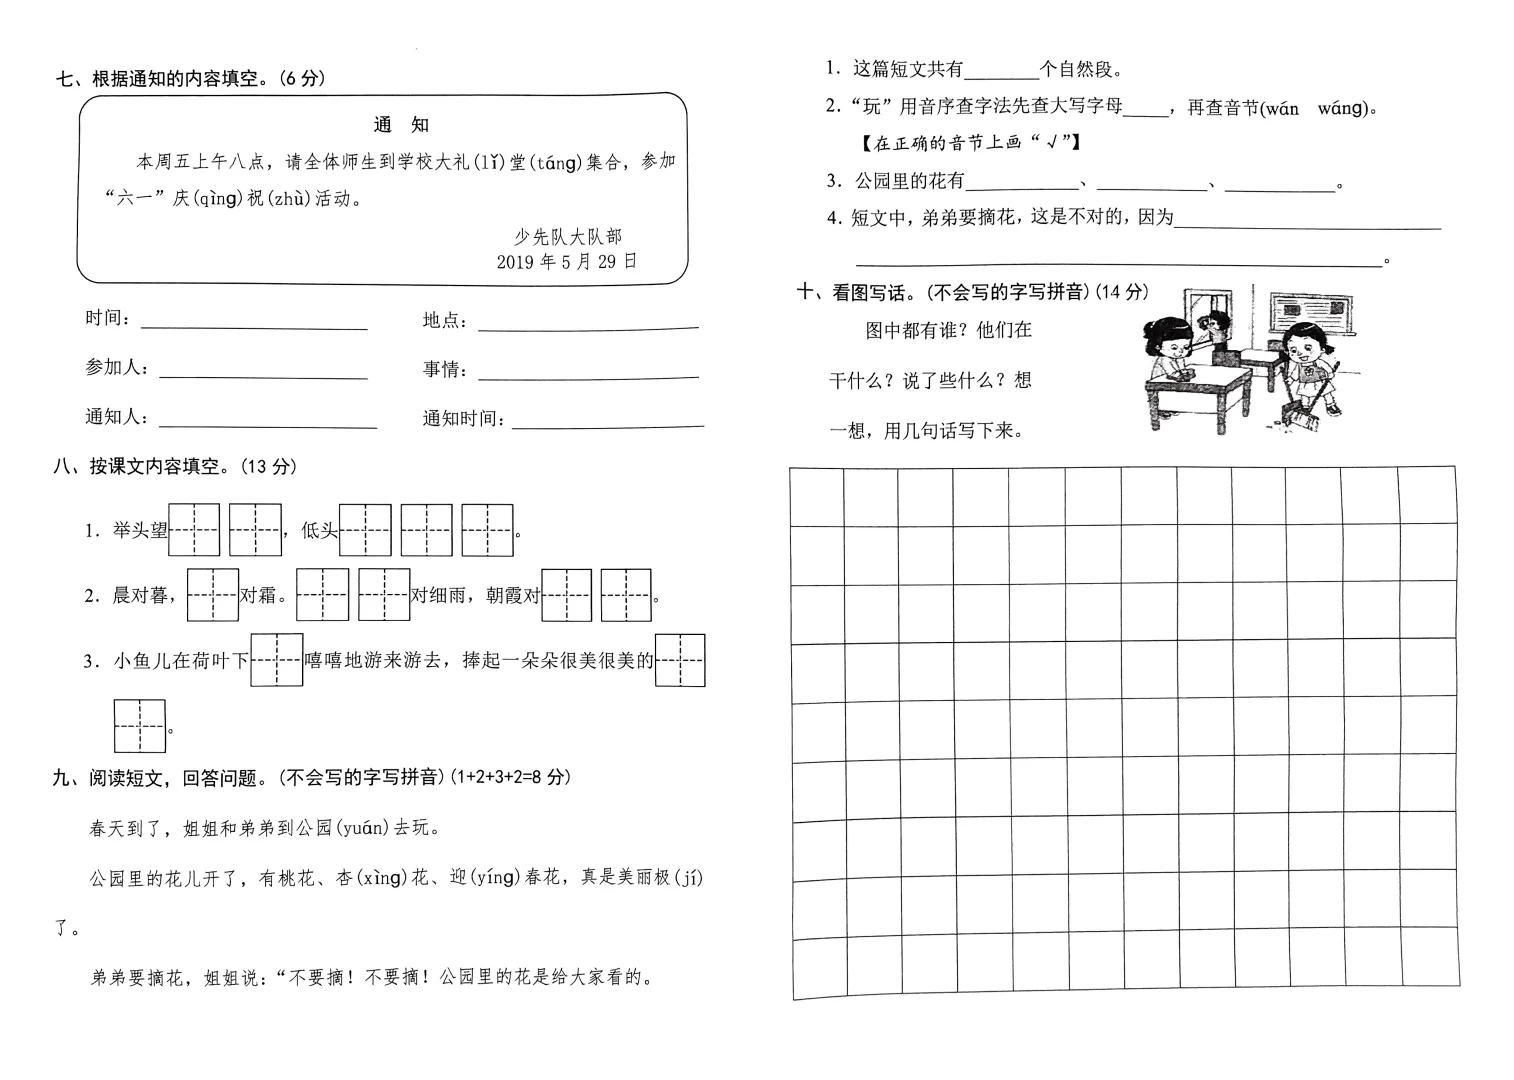 七、根据通知的内容填空。(6 分)
通 知
本周五上午八点，请全体师生到学校大礼(lǐ)堂(táng)集合，参加
“六一”庆(qìng)祝(zhù)活动。
少先队大队部
2019 年 5 月 29 日
时间：
地点：
参加人：
事情：
通知人：
通知时间：
八、按课文内容填空。(13 分)
1. 举头望 ，低头 。
2. 晨对暮， 对霜。 对细雨，朝霞对 。
3. 小鱼儿在荷叶下 嘻嘻地游来游去，捧起一朵朵很美很美的
。
九、阅读短文，回答问题。(不会写的字写拼音)(1+2+3+2=8 分)
春天到了，姐姐和弟弟到公园(yuán)去玩。
公园里的花儿开了，有桃花、杏(xìng)花、迎(yíng)春花，真是美丽极(jí)
了。
弟弟要摘花，姐姐说：“不要摘！不要摘！公园里的花是给大家看的。
1. 这篇短文共有________个自然段。
2. “玩”用音序查字法先查大写字母_____，再查音节(wán wáng)。
【在正确的音节上画“√”】
3. 公园里的花有____________、____________、____________。
4. 短文中，弟弟要摘花，这是不对的，因为____________________________
________________________________________________________。
十、看图写话。(不会写的字写拼音)(14 分)
图中都有谁？他们在
干什么？说了些什么？想
一想，用几句话写下来。